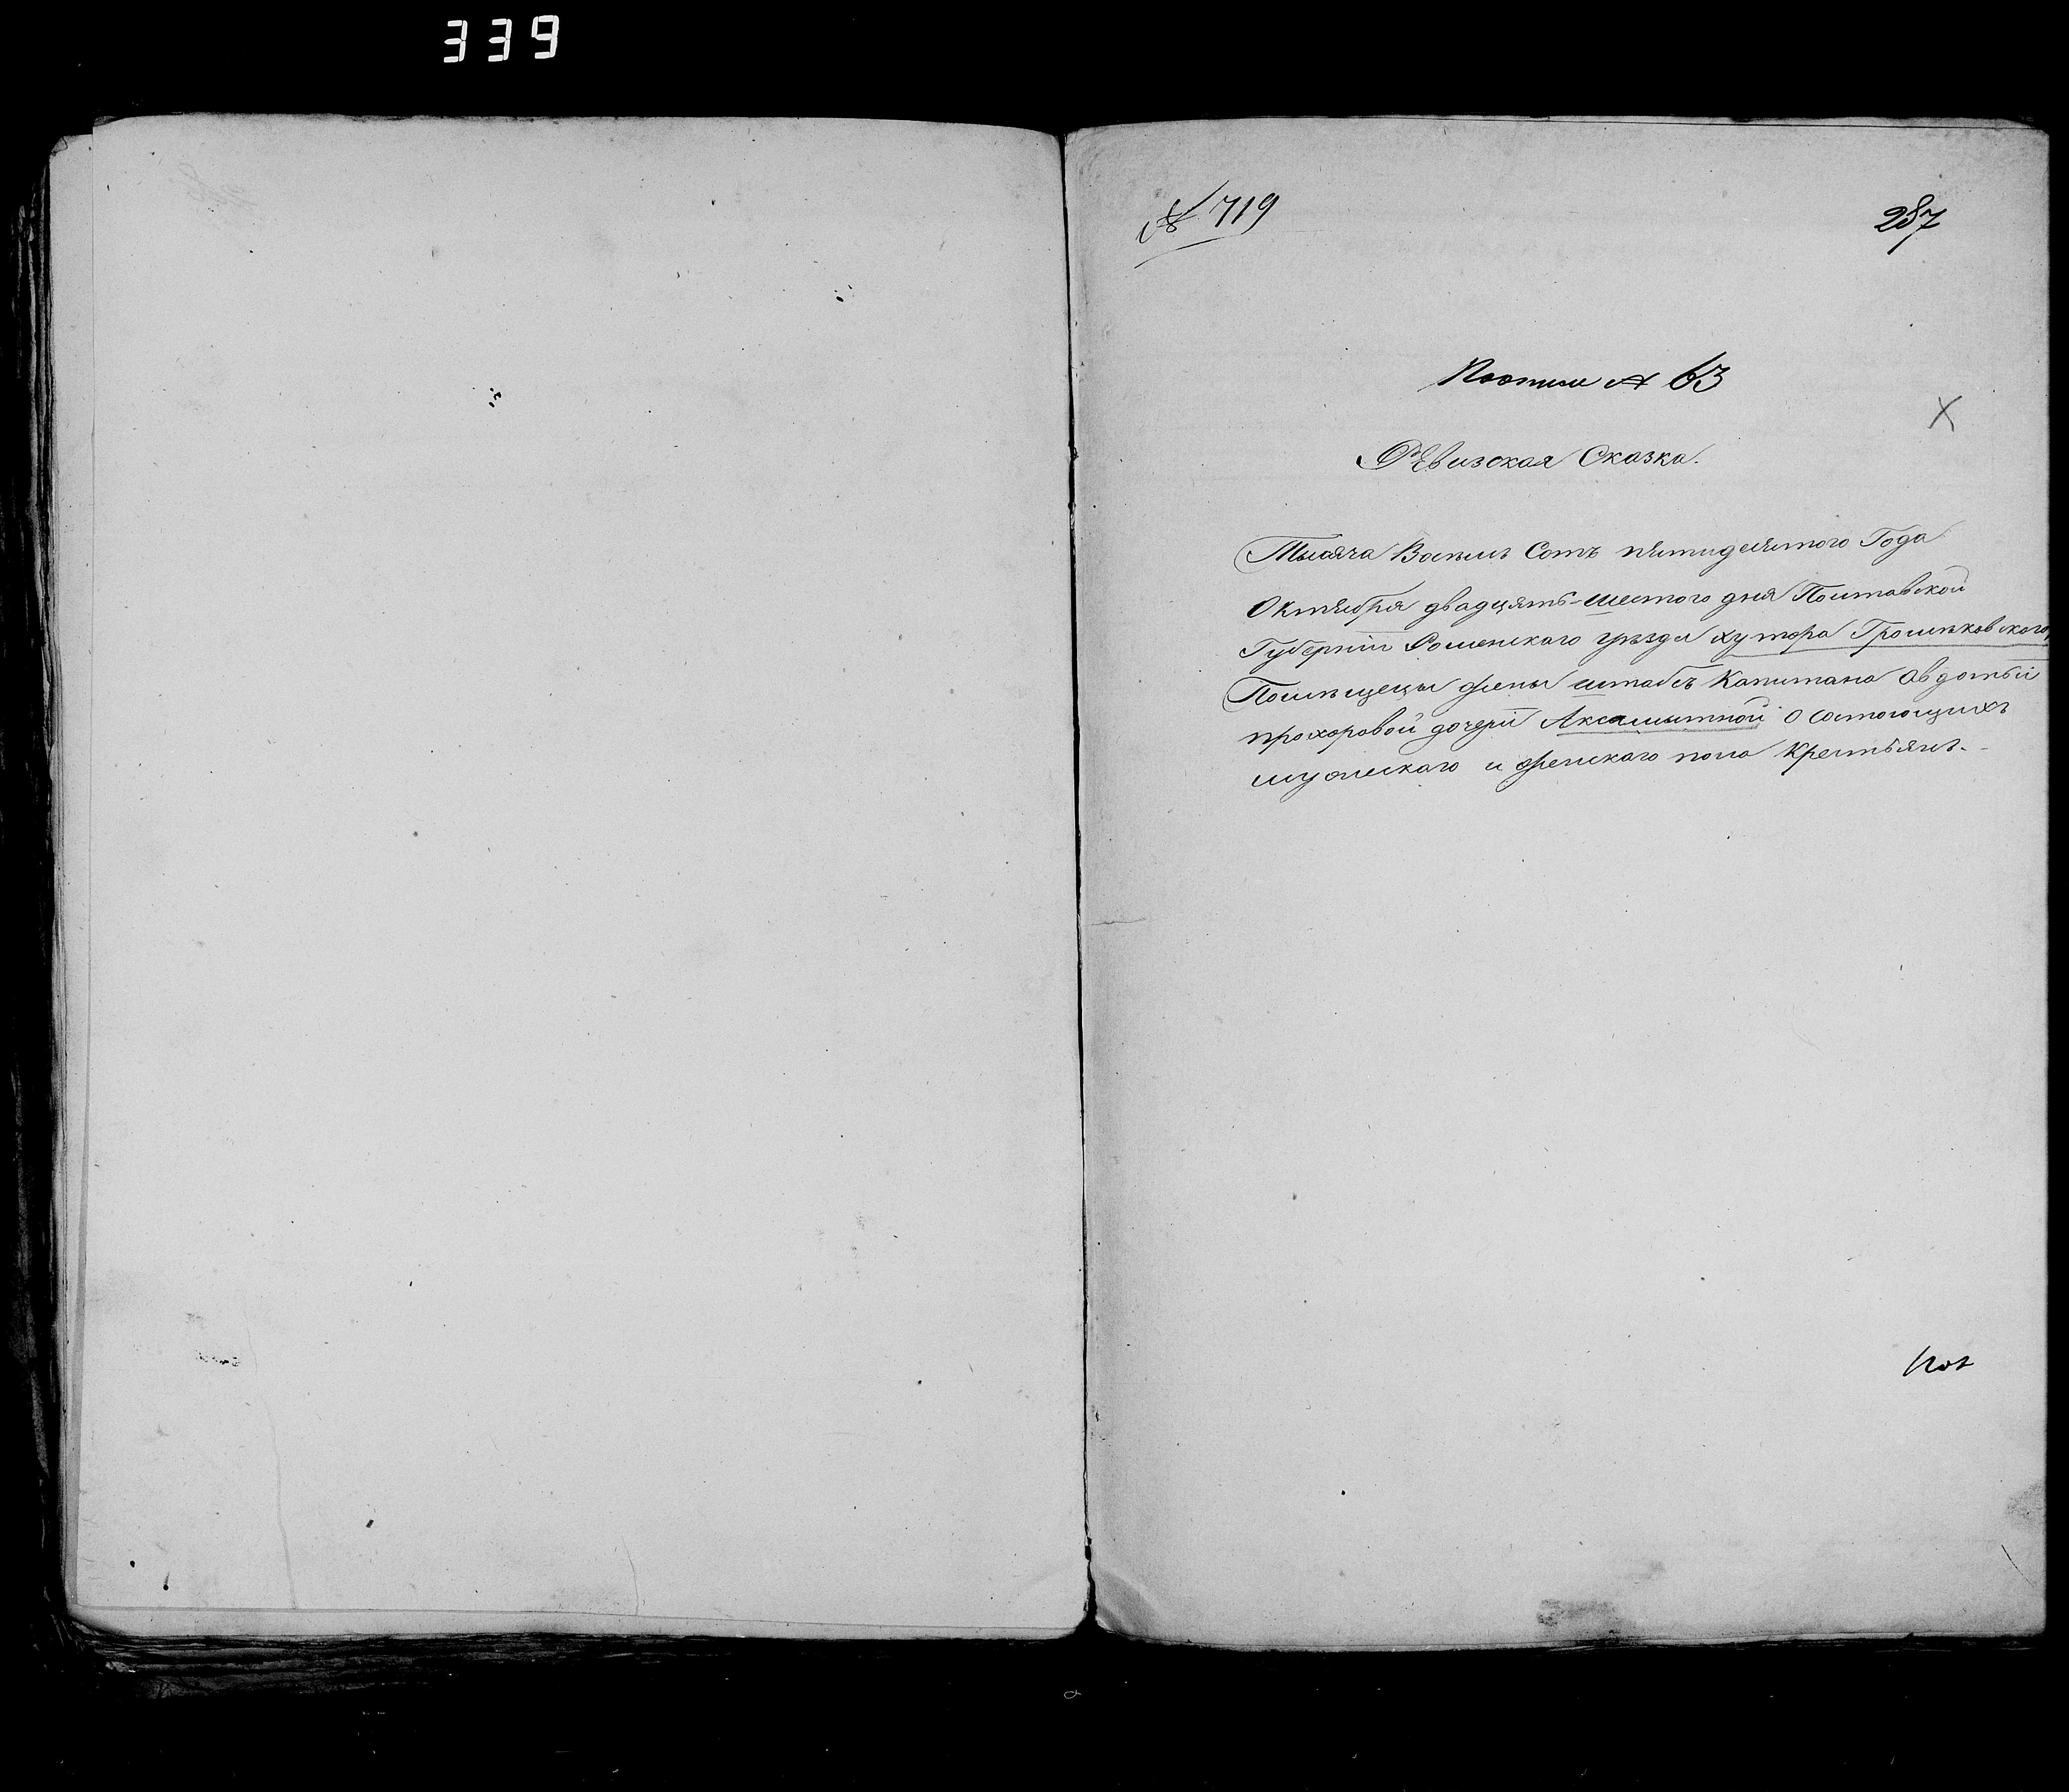 339
№ 719
287
№ 63
Х
Ревизская Сказка.
Тысяча Восемь Сотъ пятидесятого Года
Октября двадцять-шестого дня Полтавской
Губерніи Роменскаго уѣзда хутора Громѣковского,
Помѣщецы жены штабсъ Капитана Авдотьи
прохоровой дочери Аксамытной о состоющихъ
мужескаго и женскаго пола крестьянъ.-